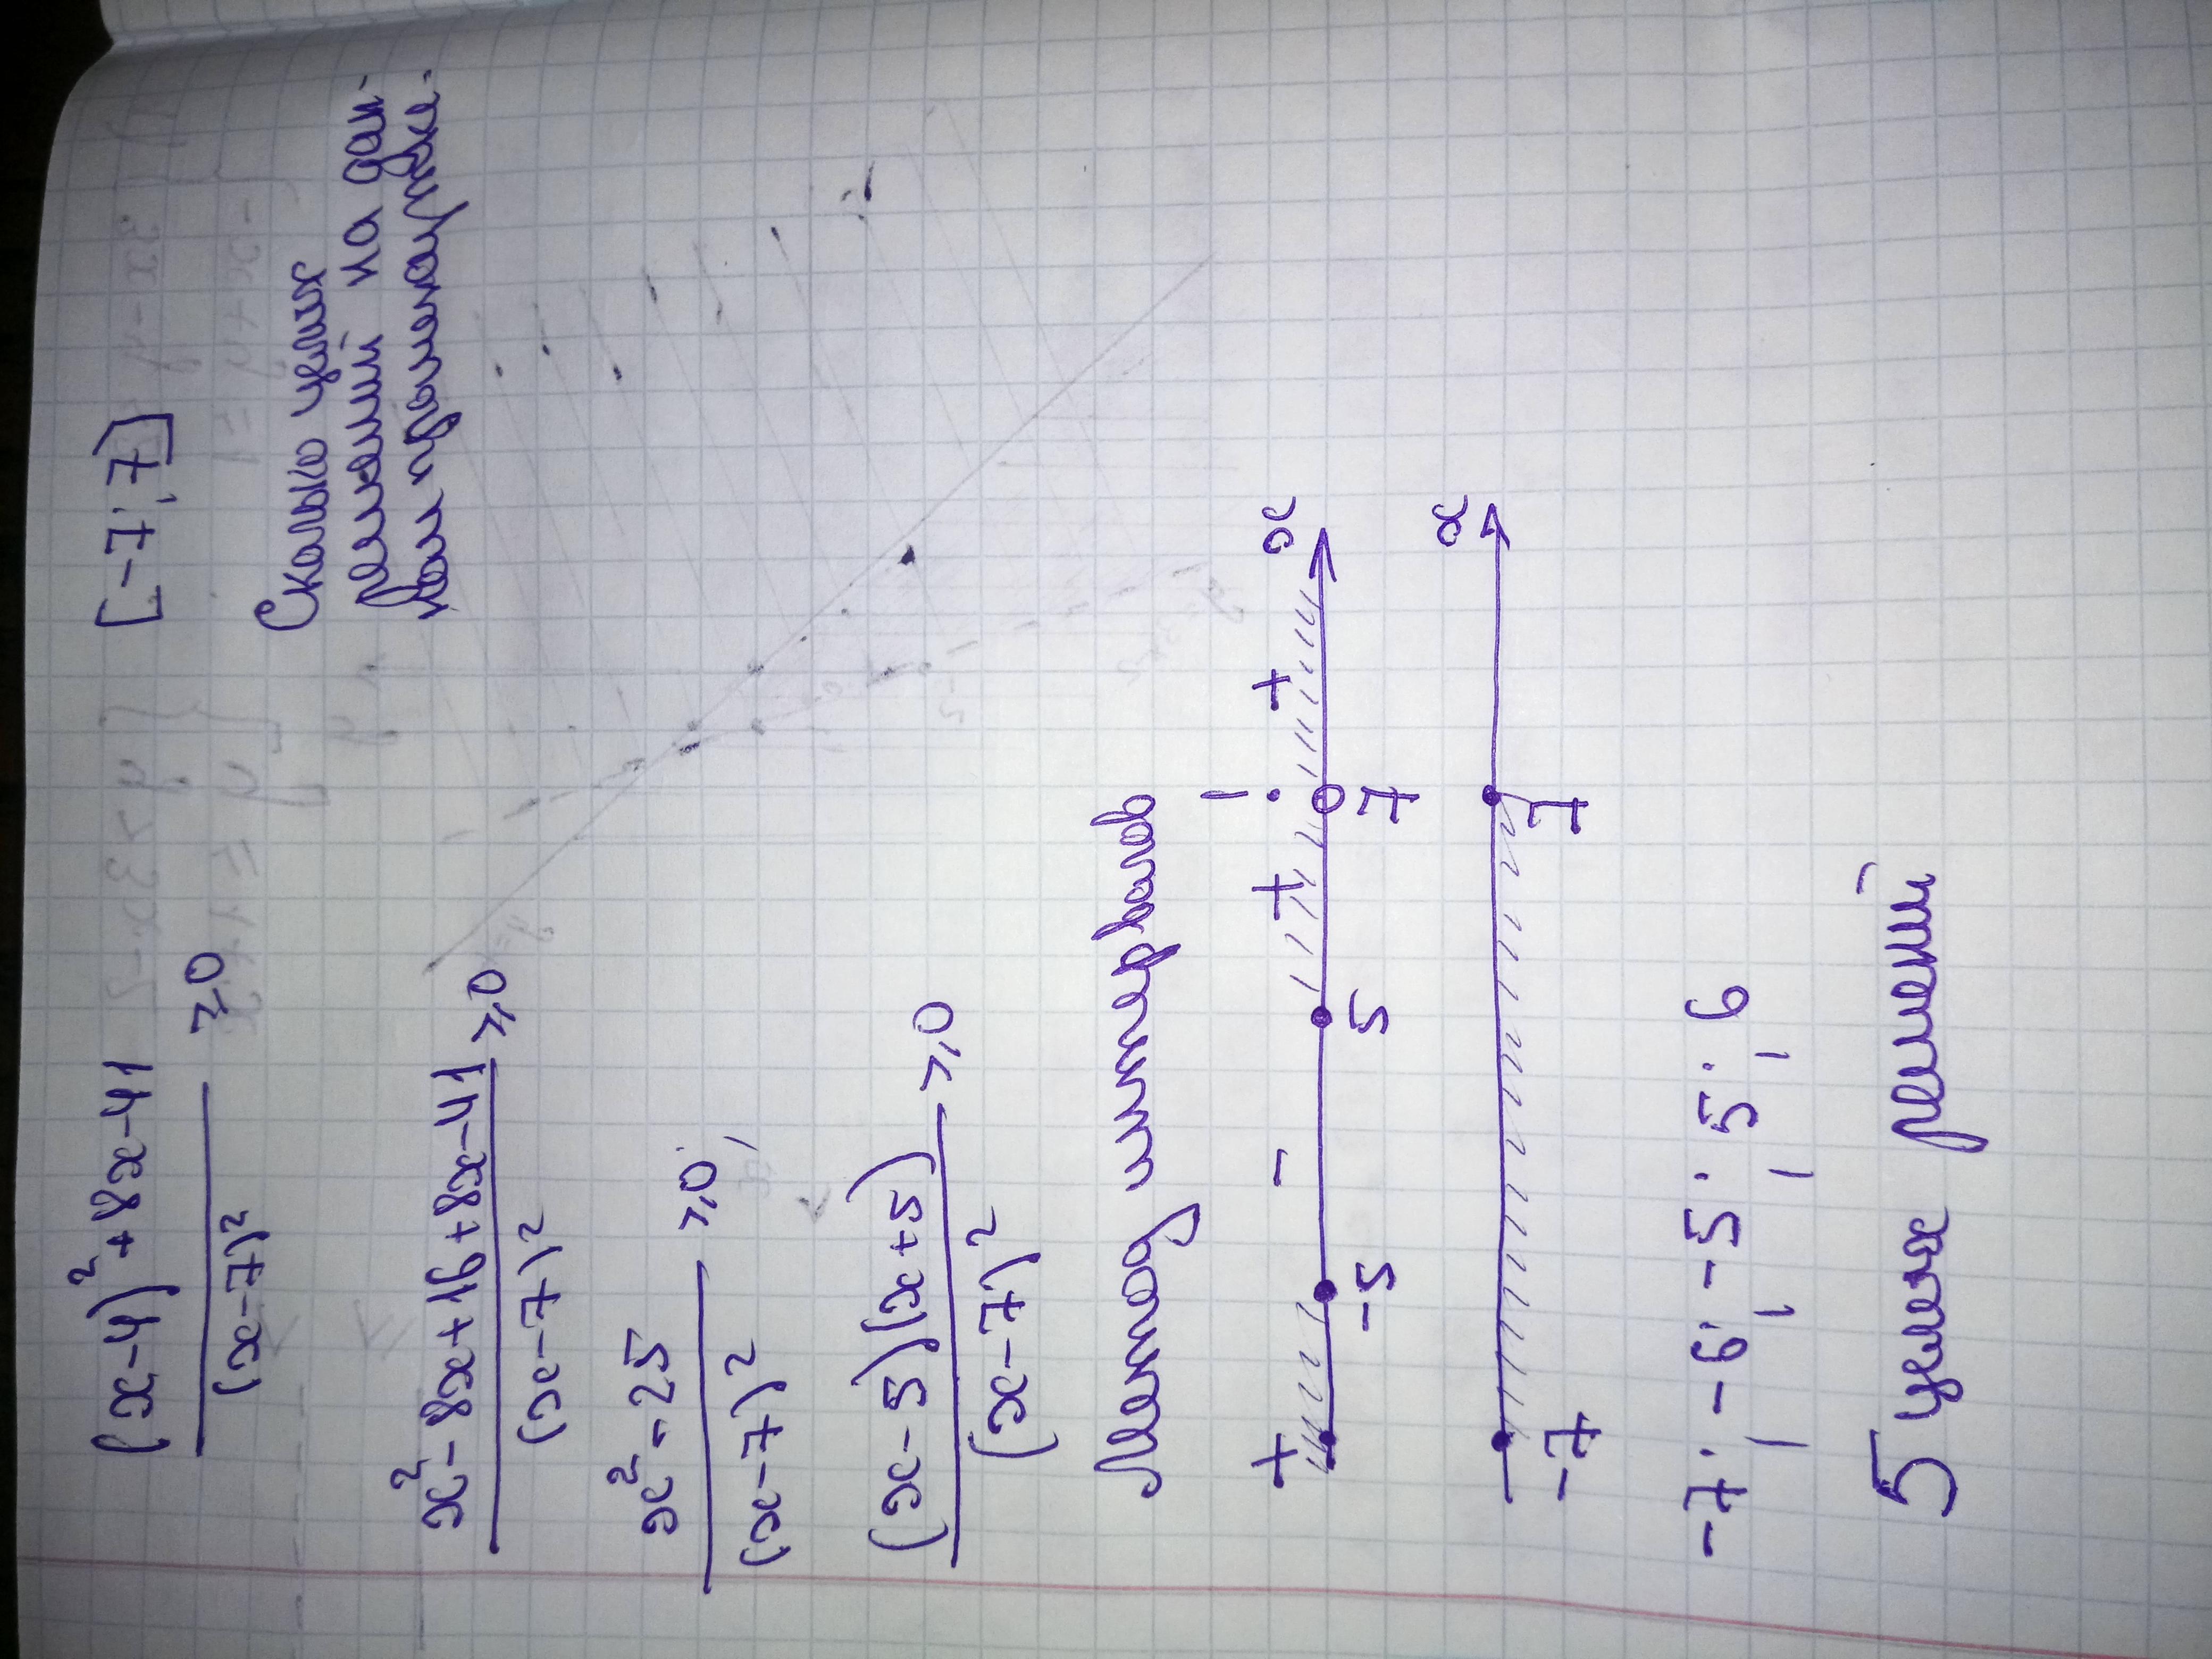 (x-4)²+8x-41
―――――― ≥0
(x-7)²
[-7;7]
Сколько целых
решений на дан-
ном промежутке.
x²-8x+16+8x-41
―――――― ≥0
(x-7)²
x²-25
―――――― ≥0
(x-7)²
(x-5)(x+5)
―――――― ≥0
(x-7)²
Методом интервалов
+ - + + x
-5 5 7
x
-7 7
-7; -6; -5; 5; 6
5 целых решений